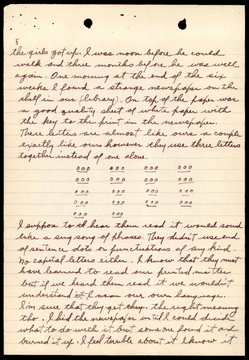 the girls got up. I was noon before he could
walk and three months before he was well
again. One morning at the end of the six
weeks I found a strange newspaper on the
shelf in our (library). On top of the paper was
a good quality sheet of white paper with
the key to the print in the newspaper.
There letters are almost like ours a couple
exactly like ours however they use three letters
together instead of one alone.
I suppose to hear them read it would sound
like a sing song of phrases. They didn't use end
of sentence dots or punctuations of any kind.
No capital letters either. I know that they must
have learned to read our printed matter
but if we heard them read it we wouldn't
understand it I mean our own language.
I'm sure that they get the right meaning
tho. I hid the newspaper in till I could decide
what to do with it but some one found it and
burned it up. I feel terrible about it I know it